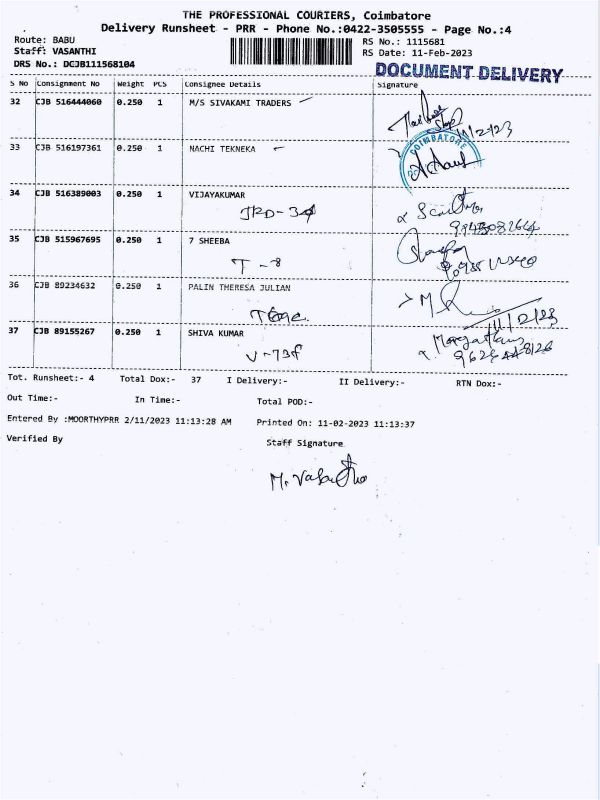 THE PROFESSIONAL COURIERS, Coimbatore
Delivery Runsheet - PRR - Phone No.:0422-3505555 - Page No.:4
Route: BABU
RS No.: 1115681
Staff: VASANTHI
RS Date: 11-Feb-2023
DRS No.: DCJB111568104
DOCUMENT DELIVERY
S No Consignment No Weight PCS Consignee Details Signature
32 CJB 516444060 0.250 1 M/S SIVAKAMI TRADERS
33 CJB 516197361 0.250 1 NACHI TEKNEKA
COIMBATORE
34 CJB 516389003 0.250 1 VIJAYAKUMAR
35 CJB 515967695 0.250 1 7 SHEEBA
T - 8
36 CJB 89234632 0.250 1 PALIN THERESA JULIAN
11/2/23
37 CJB 89155267 0.250 1 SHIVA KUMAR
Tot. Runsheet:- 4 Total Dox:- 37 I Delivery:- II Delivery:- RTN Dox:-
Out Time:- In Time:- Total POD:-
Entered By :MOORTHYPRR 2/11/2023 11:13:28 AM Printed On: 11-02-2023 11:13:37
Verified By Staff Signature